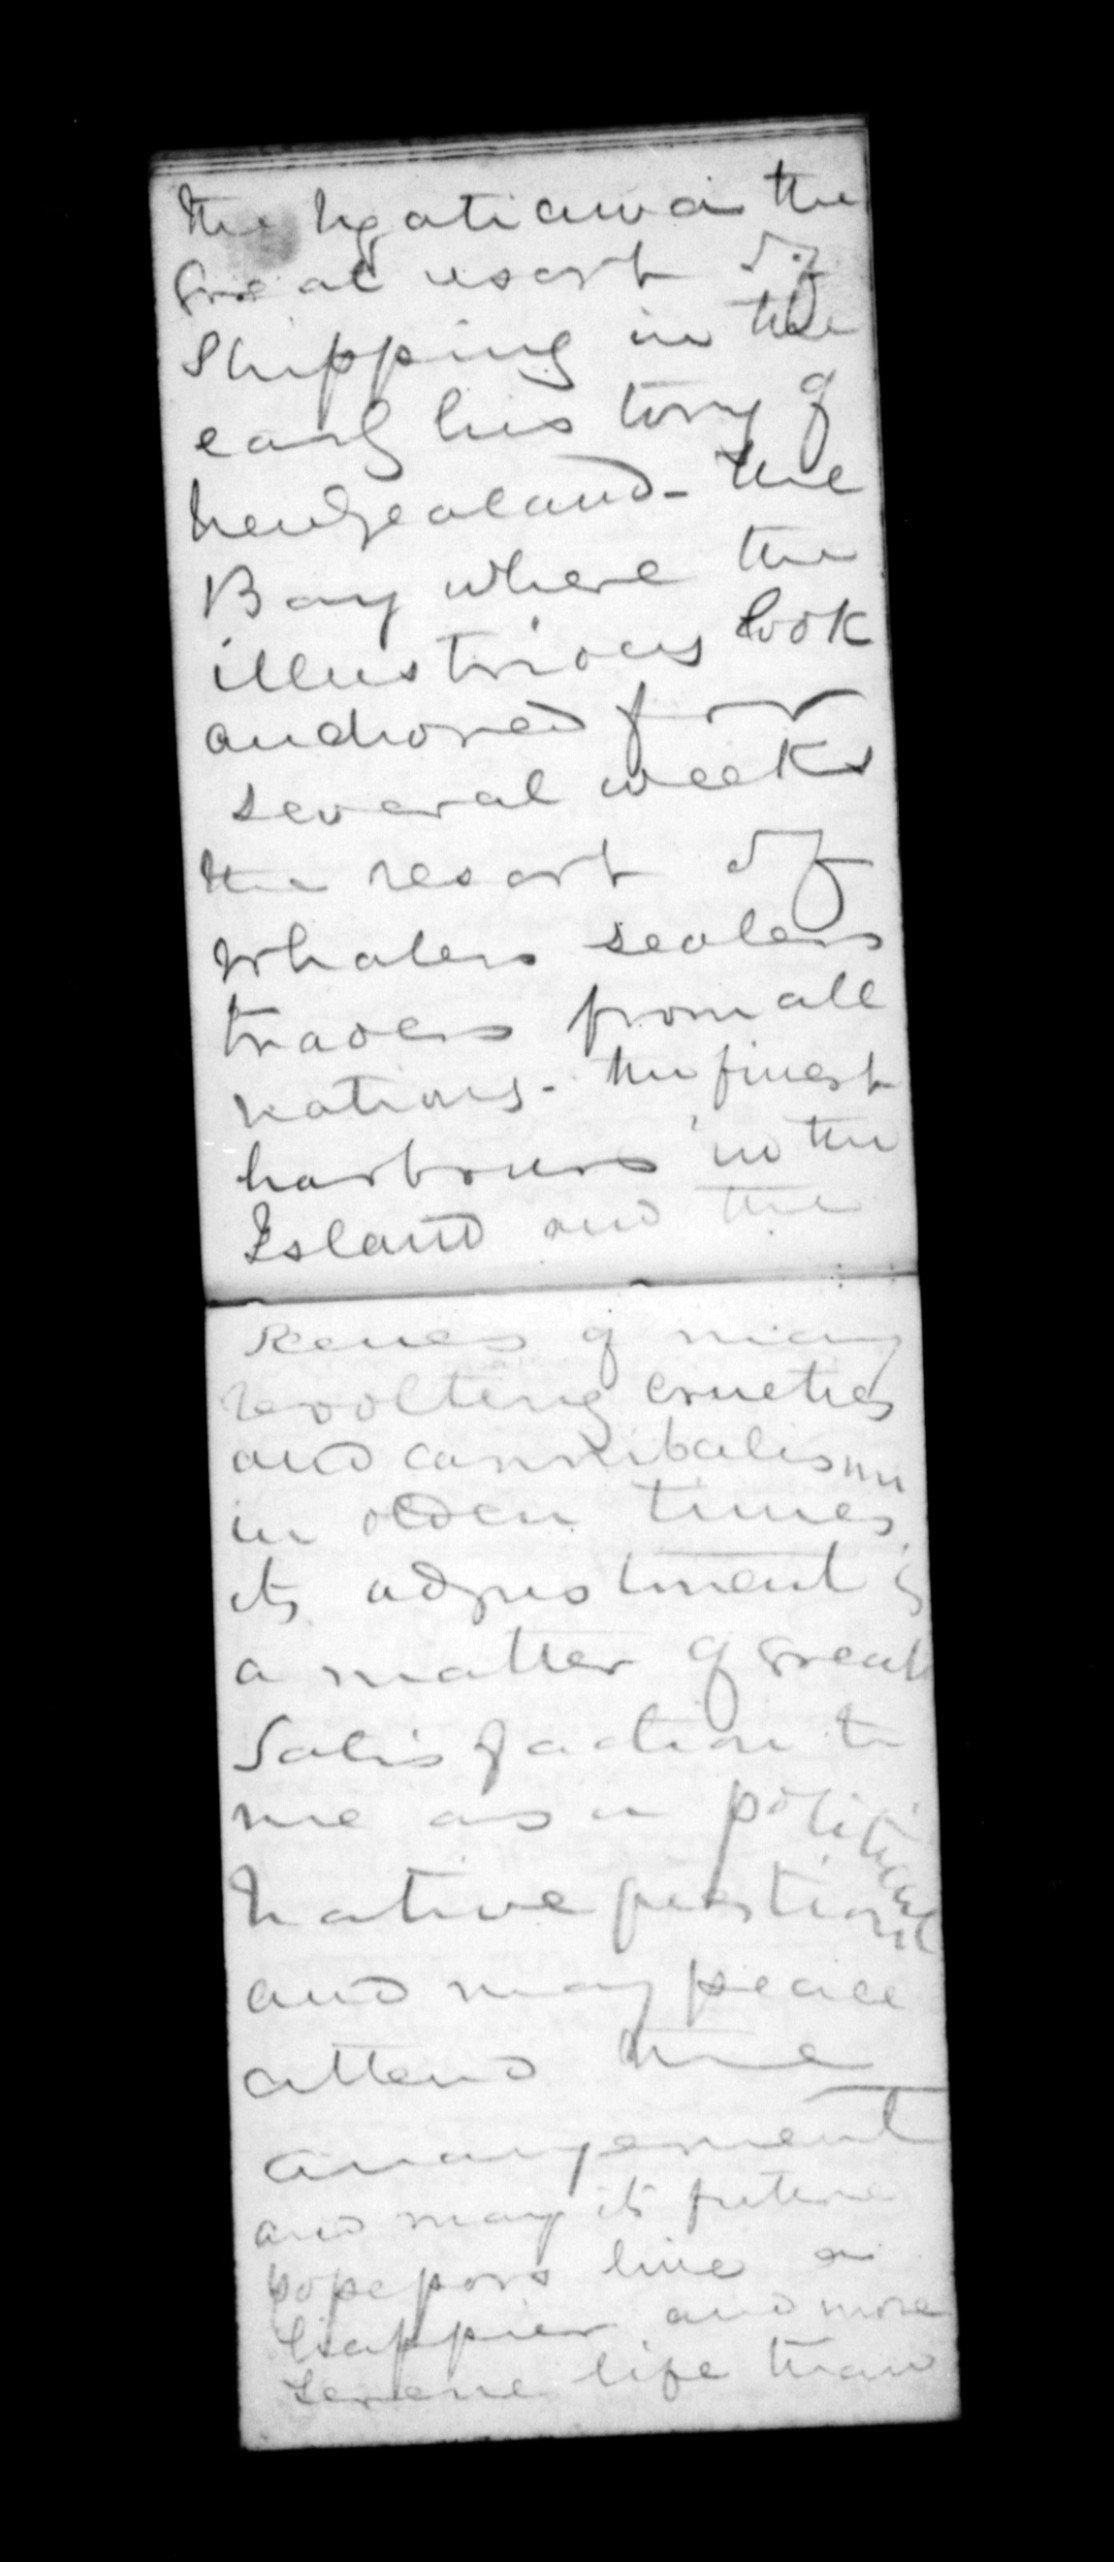 the Ngatiawa the
Great resort of
Shipping in the
early history of
New Zealand - the
Bay where the
illustrious Cook
anchored for
several weeks
the resort of
whalers sealers
traders from all
nations - the finest
harbours in the
Island and the
scenes of many
revolting cruelties
and cannibalism
in olden times
its adjustment is
a matter of great
Satisfaction to
me as a political
Native question
and may peace
attend the
arrangement
and may its future
live a
happier and more
serene life than